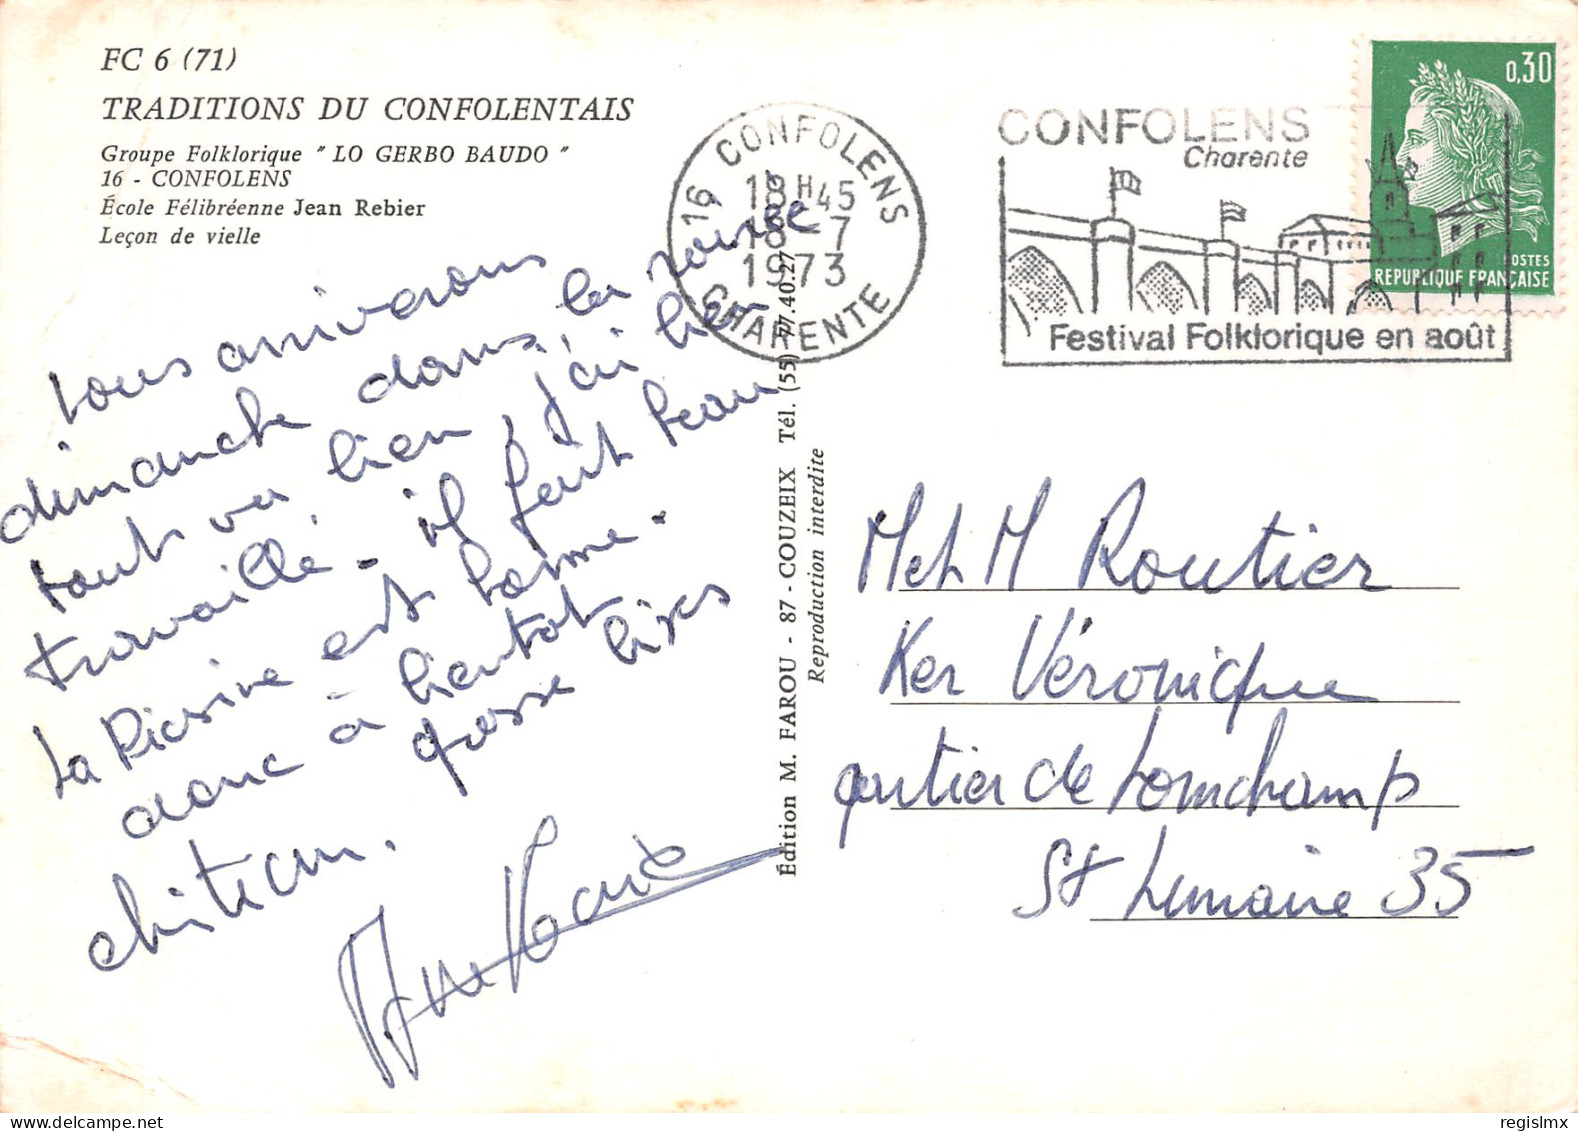 FC 6 (71)
TRADITIONS DU CONFOLENTAIS
Groupe Folklorique " LO GERBO BAUDO "
16 - CONFOLENS
École Félibréenne Jean Rebier
Leçon de vielle
16 CONFOLENS
18H45
18-7
1973
CHARENTE
CONFOLENS
Charente
Festival Folklorique en août
0,30
POSTES
REPUBLIQUE FRANÇAISE
nous arriverons
dimanche dans la soirée
tout va bien, j'ai bien
travaillé - il fait beau
La Piscine est bonne -
donc à bientot
grosse bises
Édition M. FAROU - 87 - COUZEIX Tél. (55) 77.40.27
Reproduction interdite
M et M Routier
Ker Véronique
quartier de Lonchamp
St Lunaire 35
regislmx